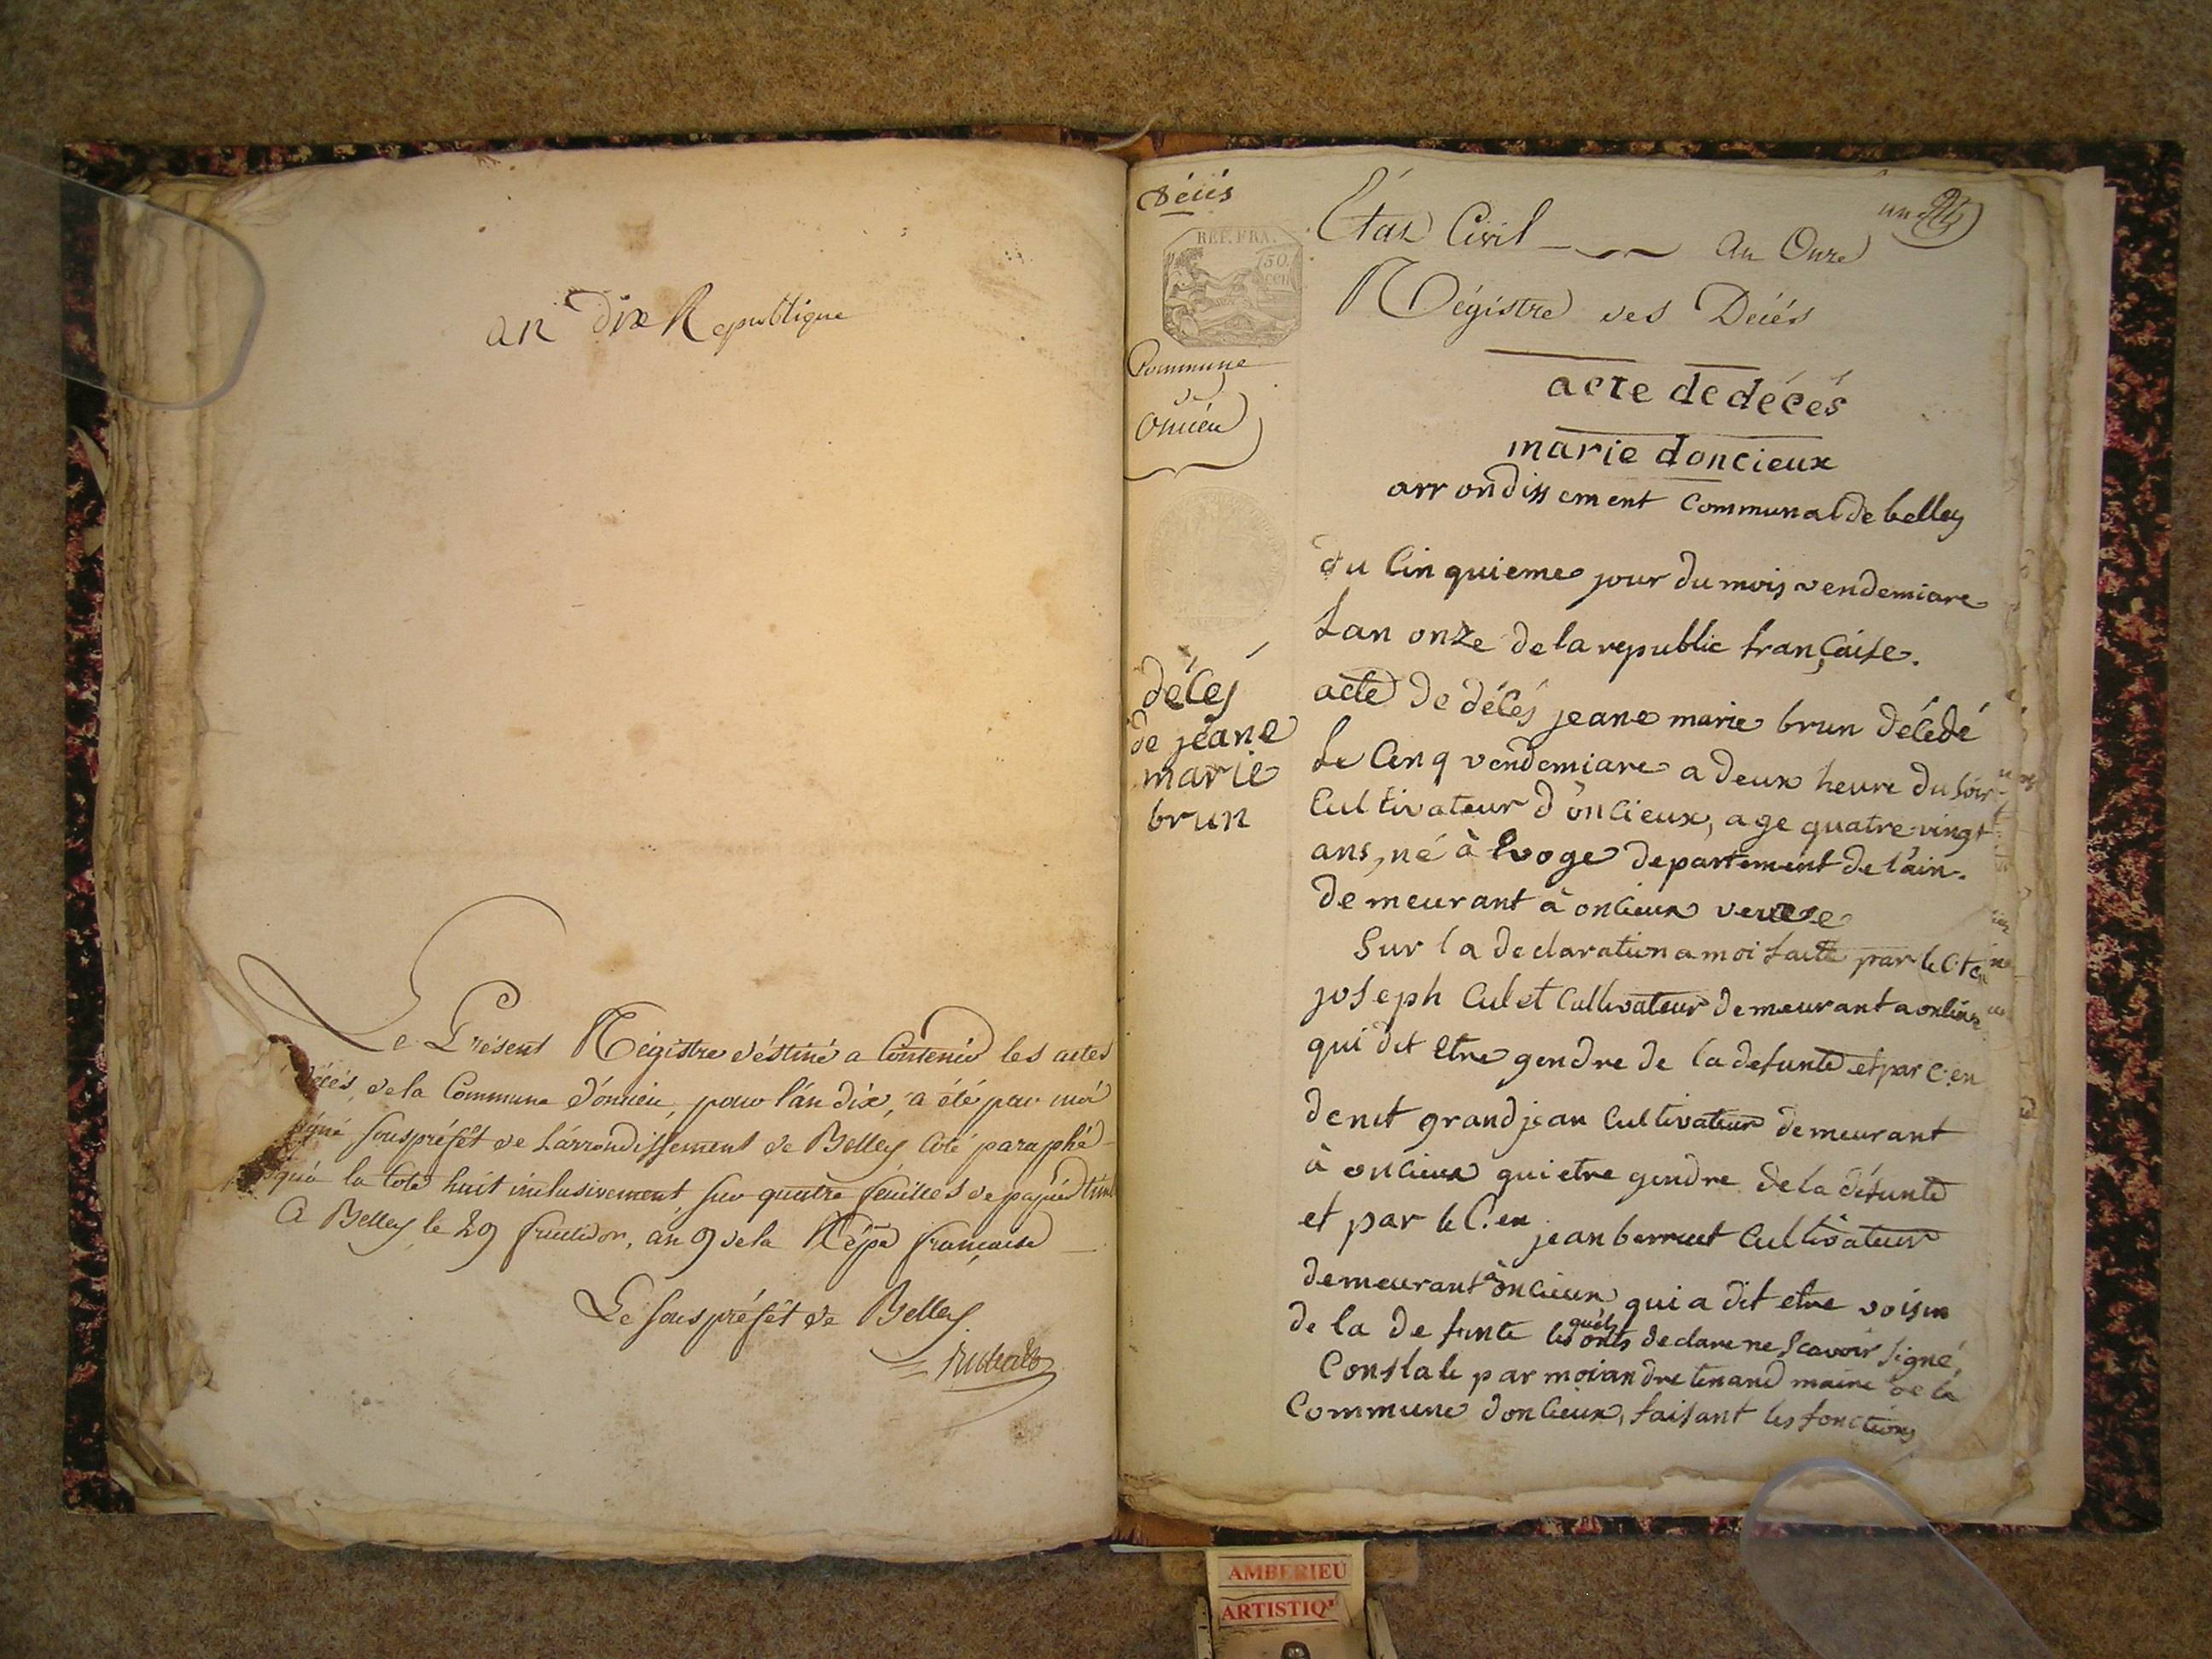 an dix Republique
Le Présent Régistre déstiné a Contenir les actes
décés, de la Commune d'oncieu, pour l'an dix, a été par moi
signé souspréfêt de L'arrondissement de Belley Coté paraphé
qu'à la Cote huit inclusivement, sur quatre feuilles de papier timb
A Belley le 29 fructidor, an 9 de la Rép.e françaisé
Le sous préfêt de Belley
Décés
REP. FRA.
50.
cen
Commune
de
Oncieu
décés
de jeane
marie
brun
un
Etat Civil an Onze
Régistre des Décés
acte de décés
marie doncieux
arrondissement Communal de belley
du Cinquieme jour du mois vendemiare
Lan onze de la republic française.
acte de décés jeane marie brun décedé
Le Cinq vendemiare a deux heure du soir
Cultivateur d'oncieux, age quatre vingt
ans, né à Evoge departement de l'ain.
demeurant à oncieux
Sur la declaration a moi faite par le C.ten
joseph Culet Cultivateur demeurant a oncieux
qui dit etre gendre de la defunte et par C.en
denit grandjean Cultivateur demeurant
à oncieux qui etre gendre de la défunte
et par le C.en jean berruet Cultivateur
demeurant à oncieux qui a dit etre voisin
de la defunte lesquels onts declare ne scavoir signé,
Constate par moi andre tenand maire de la
Commune doncieux, faisant les fonctions
AMBERIEU
ARTISTIQ